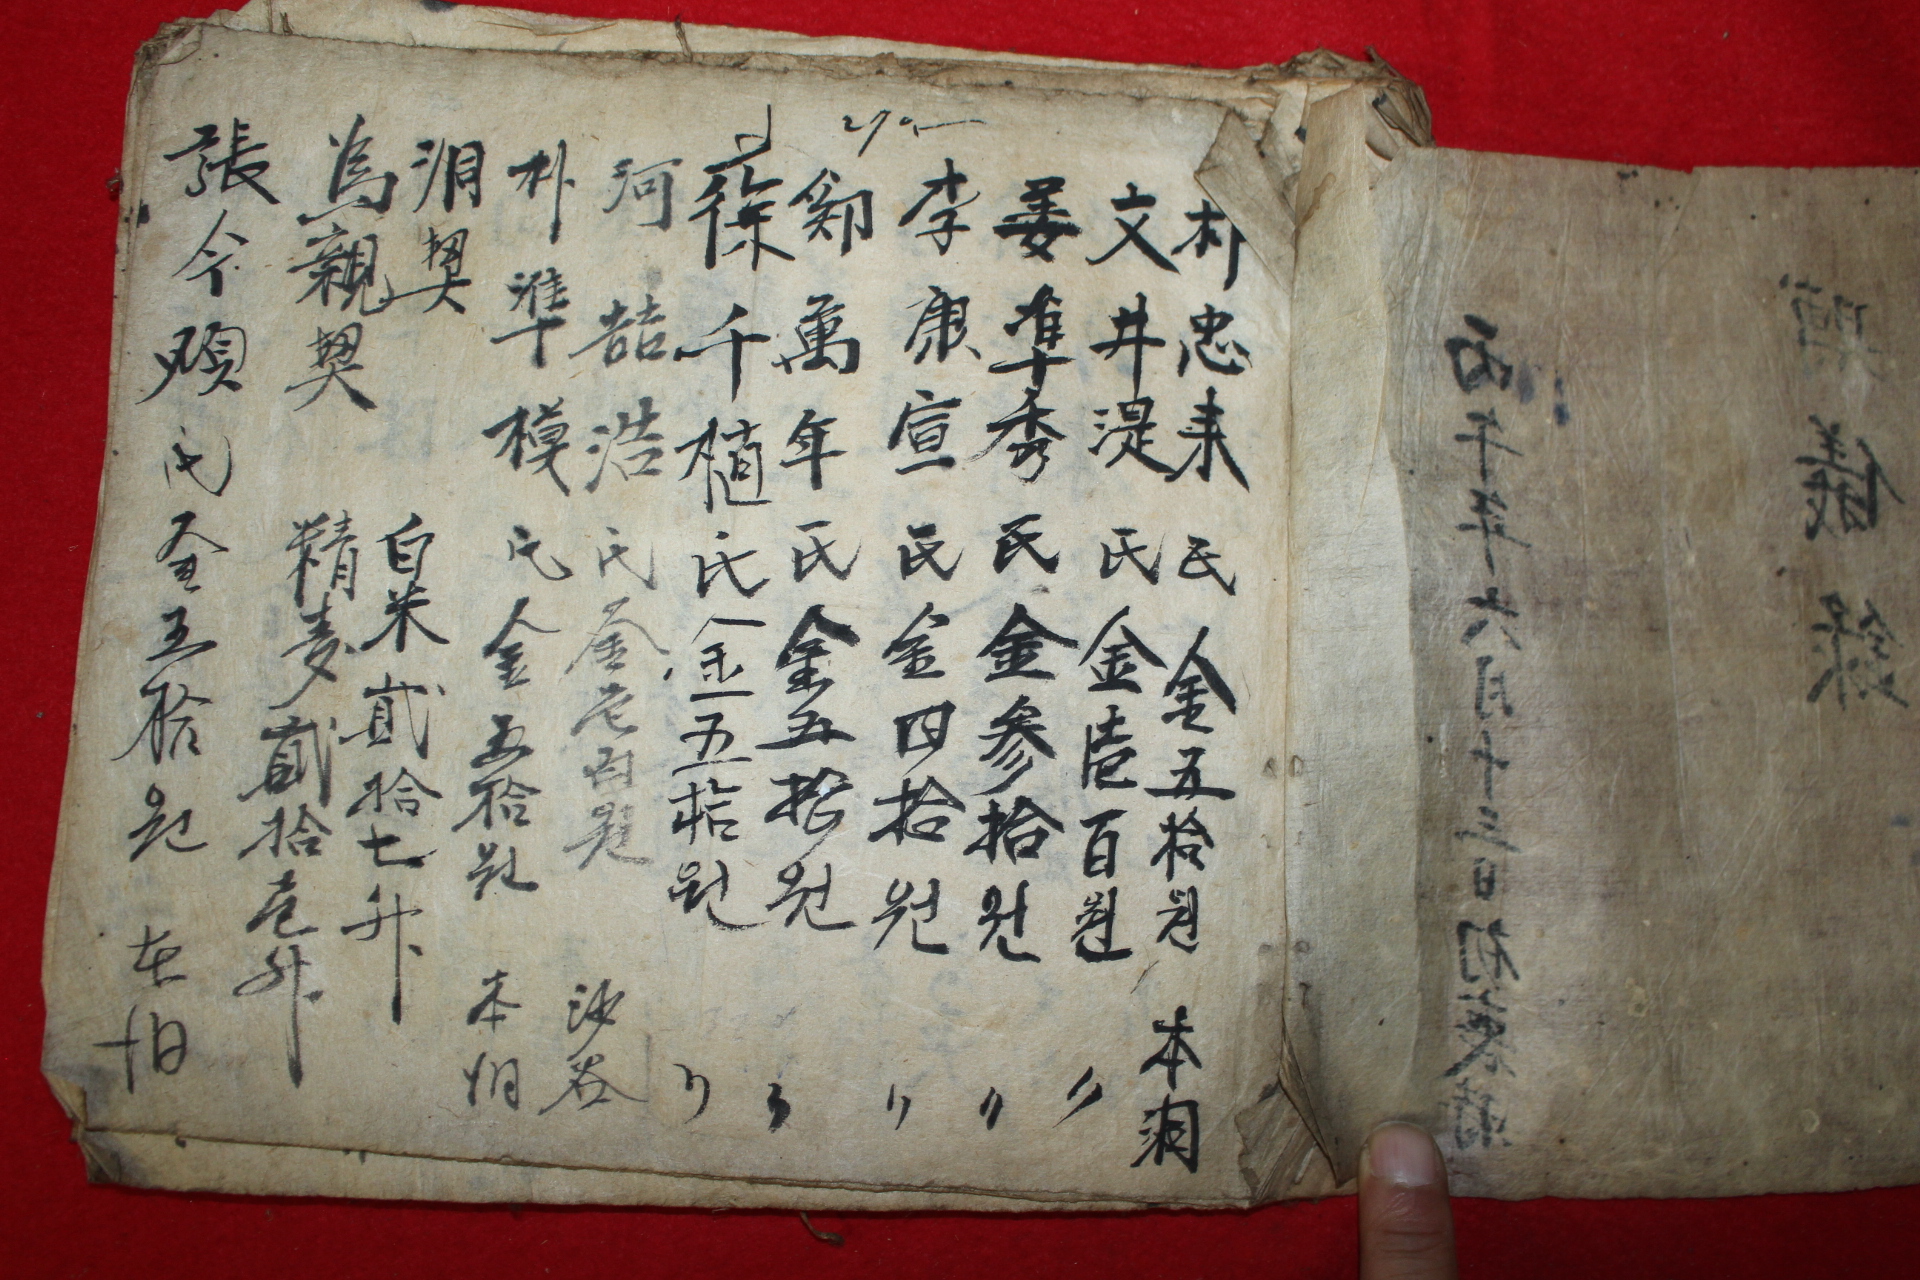 朴忠来氏金五拾원 本洞
文井湜氏金壹百원 〃
姜準秀氏金参拾원 〃
李康宣氏金四拾원 〃
鄭萬年氏金五拾원 〃
徐千植氏金五拾원 〃
河喆浩氏金壱百원 沙谷
朴準模氏金五拾원 本洞
洞契 白米貳拾七升
為親契 精麦貳拾壱升
張今碩氏金五拾원 本洞
儀錄
丙午年六月十三日初